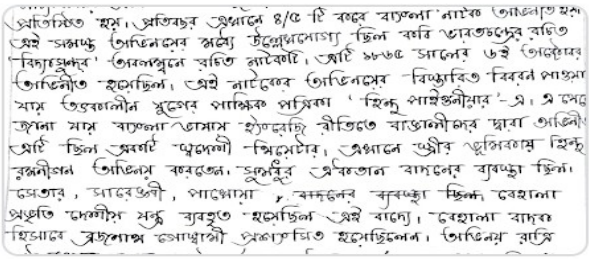 প্রতিষ্ঠিত হয়। প্রতিবছর এখানে ৪/৫ টি করে বাংলা নাটক অভিনীত হত।
এই সমস্ত অভিনয়ের মধ্যে উল্লেখযোগ্য ছিল কবি ভারতচন্দ্রের রচিত
'বিদ্যাসুন্দর' অবলম্বনে রচিত নাটকটি। এটি ১৮৩৫ সালের ৬ই অক্টোবর
অভিনীত হয়েছিল। এই নাটকের অভিনয়ের বিস্তারিত বিবরন পাওয়া
যায় তৎকালীন যুগের পাক্ষিক পত্রিকা 'হিন্দু পাইওনীয়ার'-এ। এ থেকে
জানা যায় বাংলা ভাষায় ইংরেজি রীতিতে বাঙালীদের দ্বারা অভিনীত
এটি ছিল একটি স্বদেশী থিয়েটার। এখানে স্ত্রীর ভূমিকায় হিন্দু
রমনীগন অভিনয় করতেন। সুমধুর একতান বাদনের ব্যবস্থা ছিল।
সেতার, সারেঙ্গী, পাখোয়া, বাদনের ব্যবস্থা ছিল, বেহালা
প্রভৃতি দেশীয় যন্ত্র ব্যবহৃত হয়েছিল এই বাদ্যে। বেহালা বাদক
হিসাবে ব্রজনাথ গোস্বামী প্রশংসিত হয়েছিলেন। অভিনয় রাত্রি